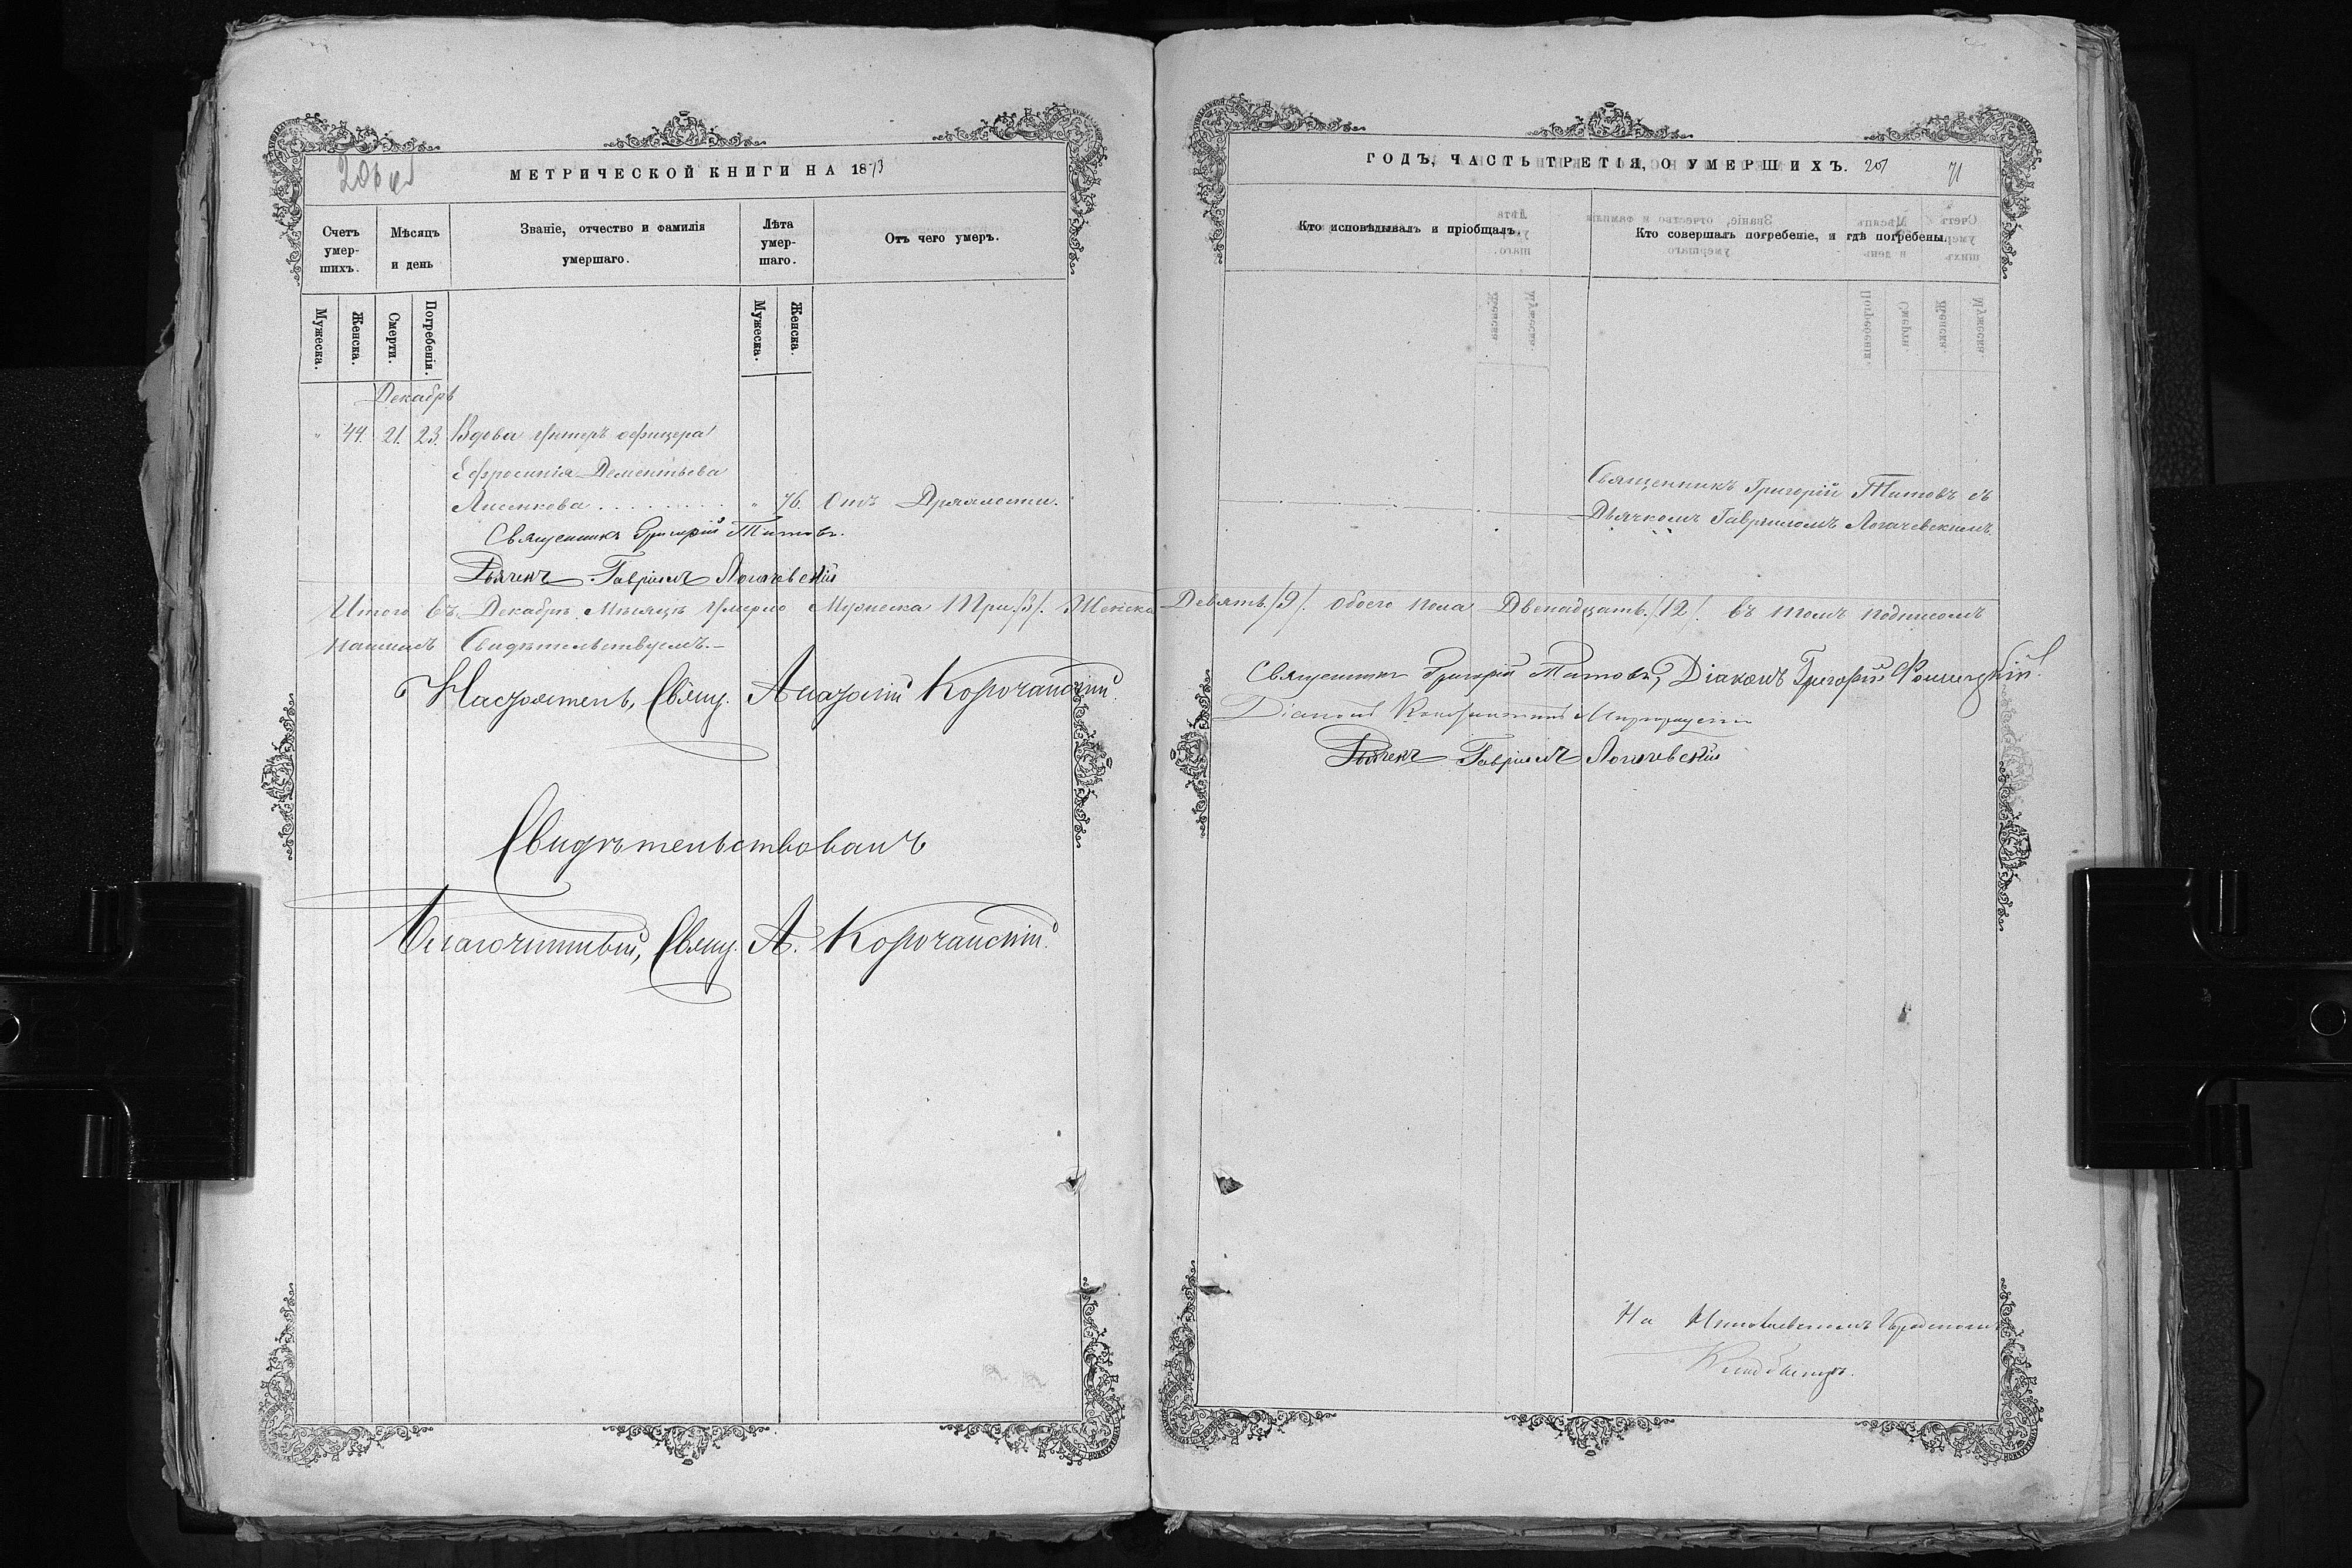 206 об
МЕТРИЧЕСКОЙ КНИГИ НА 1873
Счетъ умер-шихъ.
Мѣсяцъ и день
Званіе, отчество и фамилія умершаго.
Лѣта умер-шаго.
Отъ чего умеръ.
Мужеска.
Женска.
Смерти.
Погребенія.
Мужеска.
Женска.
Декабрь
" 44. 21. 23. Вдова Унтеръ офицера
Ефросинія Дементьева
Лисенкова . . . . . . . . " 76. Отъ Дряхлости.
Священникъ Григорій Титовъ.
Дьячекъ Гавріилъ Логачевскій
Итого въ Декабрѣ Мѣсяцѣ Умерло Мужеска Три /3/. Женска
нашимъ Свидѣтельствуемъ.—
Настоятель, Свящ. Анатолій Корочанскій.
Свидѣтельствовалъ
Благочинный, Свящ. А. Корочанскій.
ГОДЪ, ЧАСТЬ ТРЕТІЯ, О УМЕРШИХЪ. 207
71
Кто исповѣдывалъ и пріобщалъ.
Кто совершалъ погребеніе, и гдѣ погребены.
Священникъ Григорій Титовъ съ
Дьячкомъ Гавріиломъ Логачевскимъ.
Девять /9/. Обоего пола Двенадцать /12/. въ томъ подписомъ
Священникъ Григорій Титовъ, Діаконъ Григорій
Діаконъ Константинъ
Дьячекъ Гавріилъ Логачевскій
На Николаевскомъ Городскомъ
Кладбищѣ.